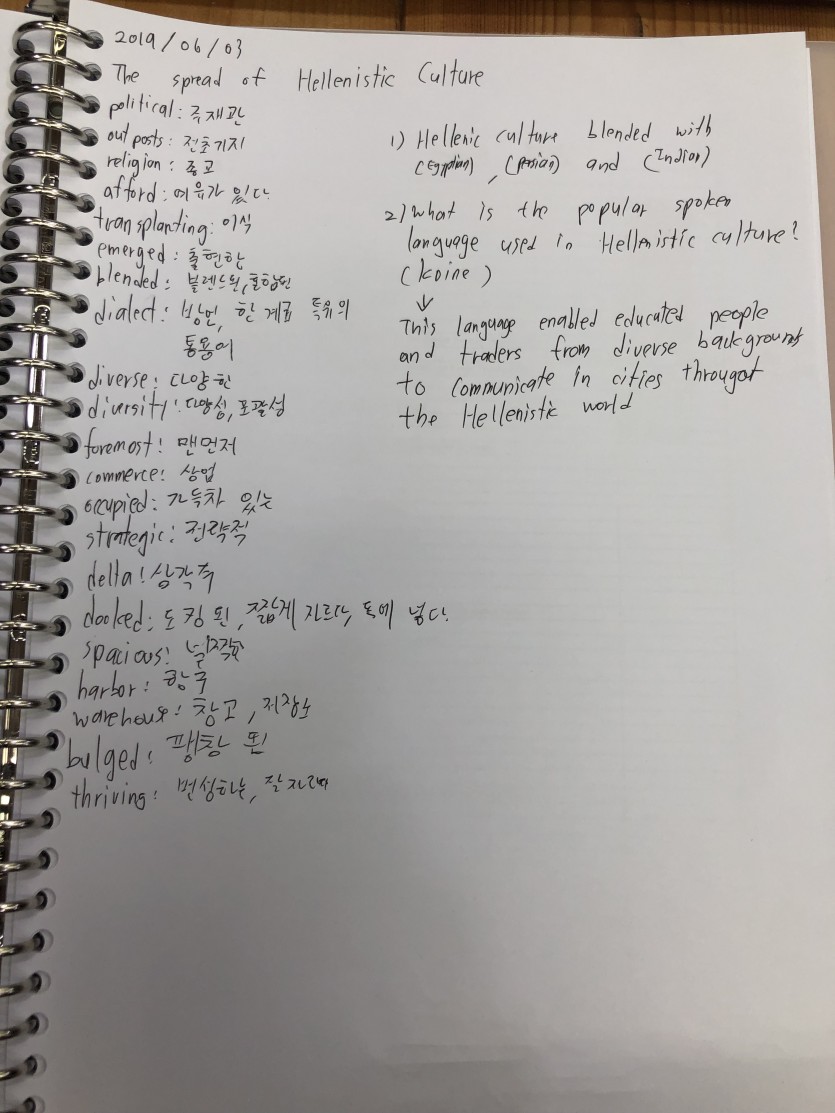 2019/06/03
The spread of Hellenistic Culture
political: 주재관
outposts: 전초기지
religion: 종교
afford: 여유가 있다
transplanting: 이식
emerged: 출현함
blended: 블렌드된, 혼합된
dialect: 방언, 한 계급 특유의
통용어
diverse: 다양한
diversity: 다양성, 포괄성
foremost: 맨먼저
commerce: 상업
occupied: 가득차 있는
strategic: 전략적
delta: 삼각주
dooked: 도킹 된, 짧게 자르다, 독에 넣다
spacious: 널찍한
harbor: 항구
warehouse: 창고, 저장소
bulged: 팽창 된
thriving: 번성하는, 잘 자라는
1) Hellenic culture blended with
(Egyptian), (Persian) and (Indian)
2) What is the popular spoken
language used in Hellenistic culture?
(koine)
↓
This language enabled educated people
and traders from diverse backgrounds
to communicate in cities througat
the Hellenistic world